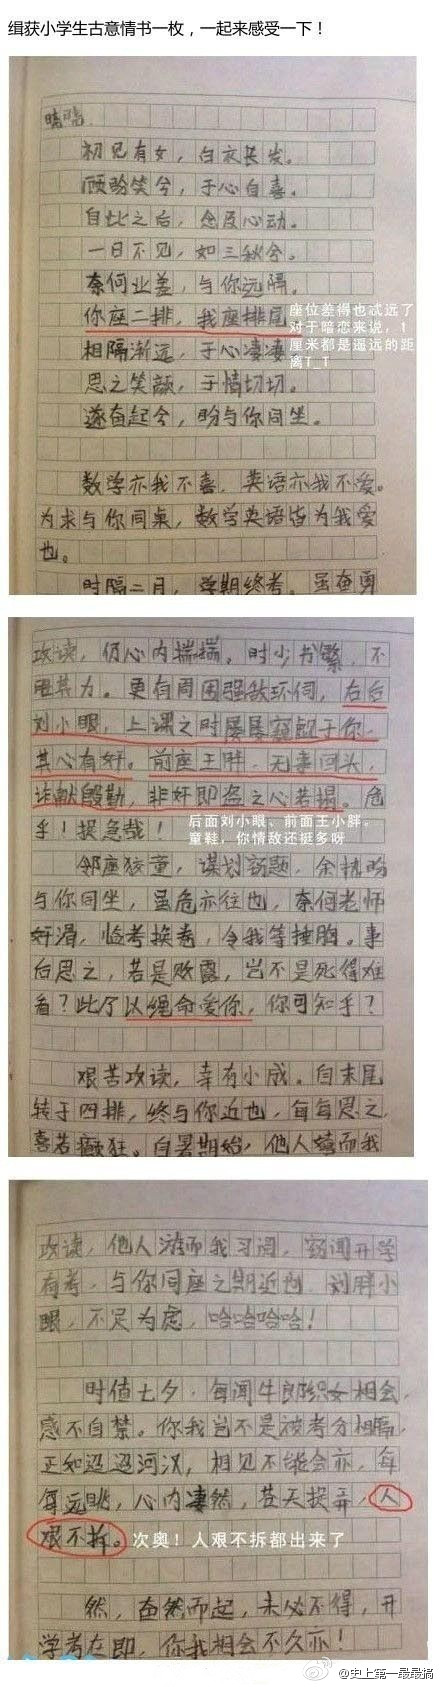 缉获小学生古意情书一枚，一起来感受一下！
晴晴
初见有女，白衣长发。
顾盼笑兮，于心自喜。
自此之后，念及心动。
一日不见，如三秋兮。
奈何业差，与你远隔。
你座二排，我座排尾
相隔渐远，于心凄凄
思之笑颜，于情切切。
遂奋起兮，盼与你同坐。
座位差得也忒远了
对于暗恋来说，1
厘米都是遥远的距
离T_T
数学亦我不喜，英语亦我不爱。
为求与你同桌，数学英语皆为我爱
也。
时隔二月，学期终考。虽奋勇
攻读，仍心内揣揣。时少书繁，不
胜其力。更有周围强敌环伺，右后
刘小眼，上课之时屡屡窥觑于你，
其心有奸。前座王胖，无事回头，
诈献殷勤，非奸即盗之心若揭。危
乎！提急哉！
后面刘小眼、前面王小胖。
童鞋，你情敌还挺多呀
邻座狡童，谋划窃题，余持盼
与你同坐，虽危亦往也，奈何老师
奸滑，临考换卷，令我等捶胸。事
后思之，若是败露，岂不是死得难
看？此乃以绳命爱你，你可知乎？
艰苦攻读，幸有小成。自末尾
转于四排，终与你近也，每每思之，
喜若癫狂。自暑期始，他人嬉而我
攻读，他人游而我习阅，窃闻开学
有考，与你同座之期近也，刘胖小
眼，不足为虑，哈哈哈哈！
时值七夕，每闻牛郎织女相会，
感不自禁。你我岂不是被考分相隔，
正如迢迢河汉，相见不能会亦，每
每远眺，心内凄然，苍天捉弄，人
艰不拆。
次奥！人艰不拆都出来了
然，奋然而起，未必不得，开
学考在即，你我相会不久亦！
@史上第一最最搞